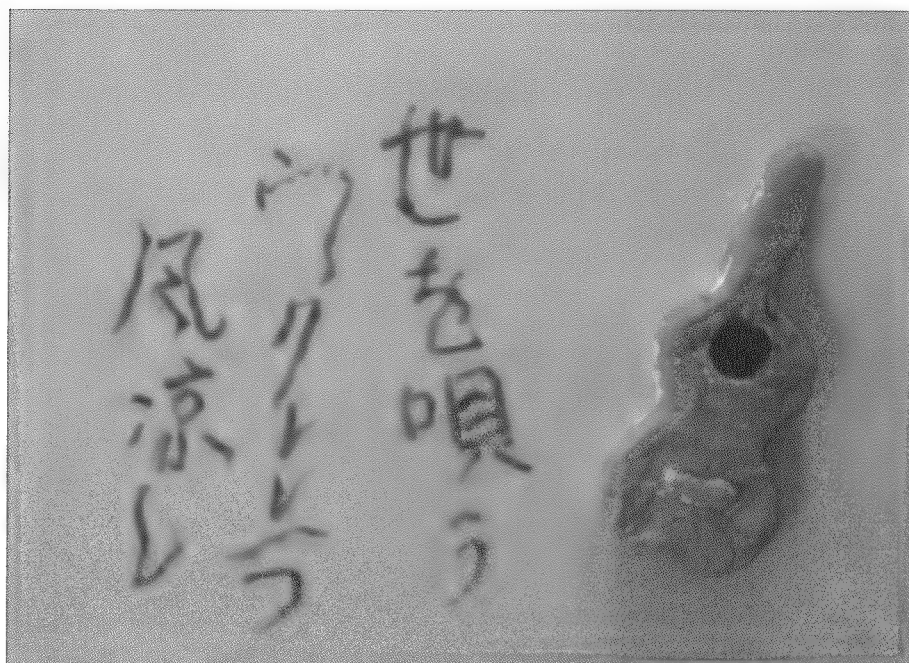 世を唄う
ウクレレ一つ
風涼し